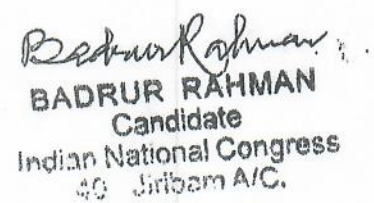 Badrur Rahman
BADRUR RAHMAN
Candidate
Indian National Congress
40 Jiribam A/C.